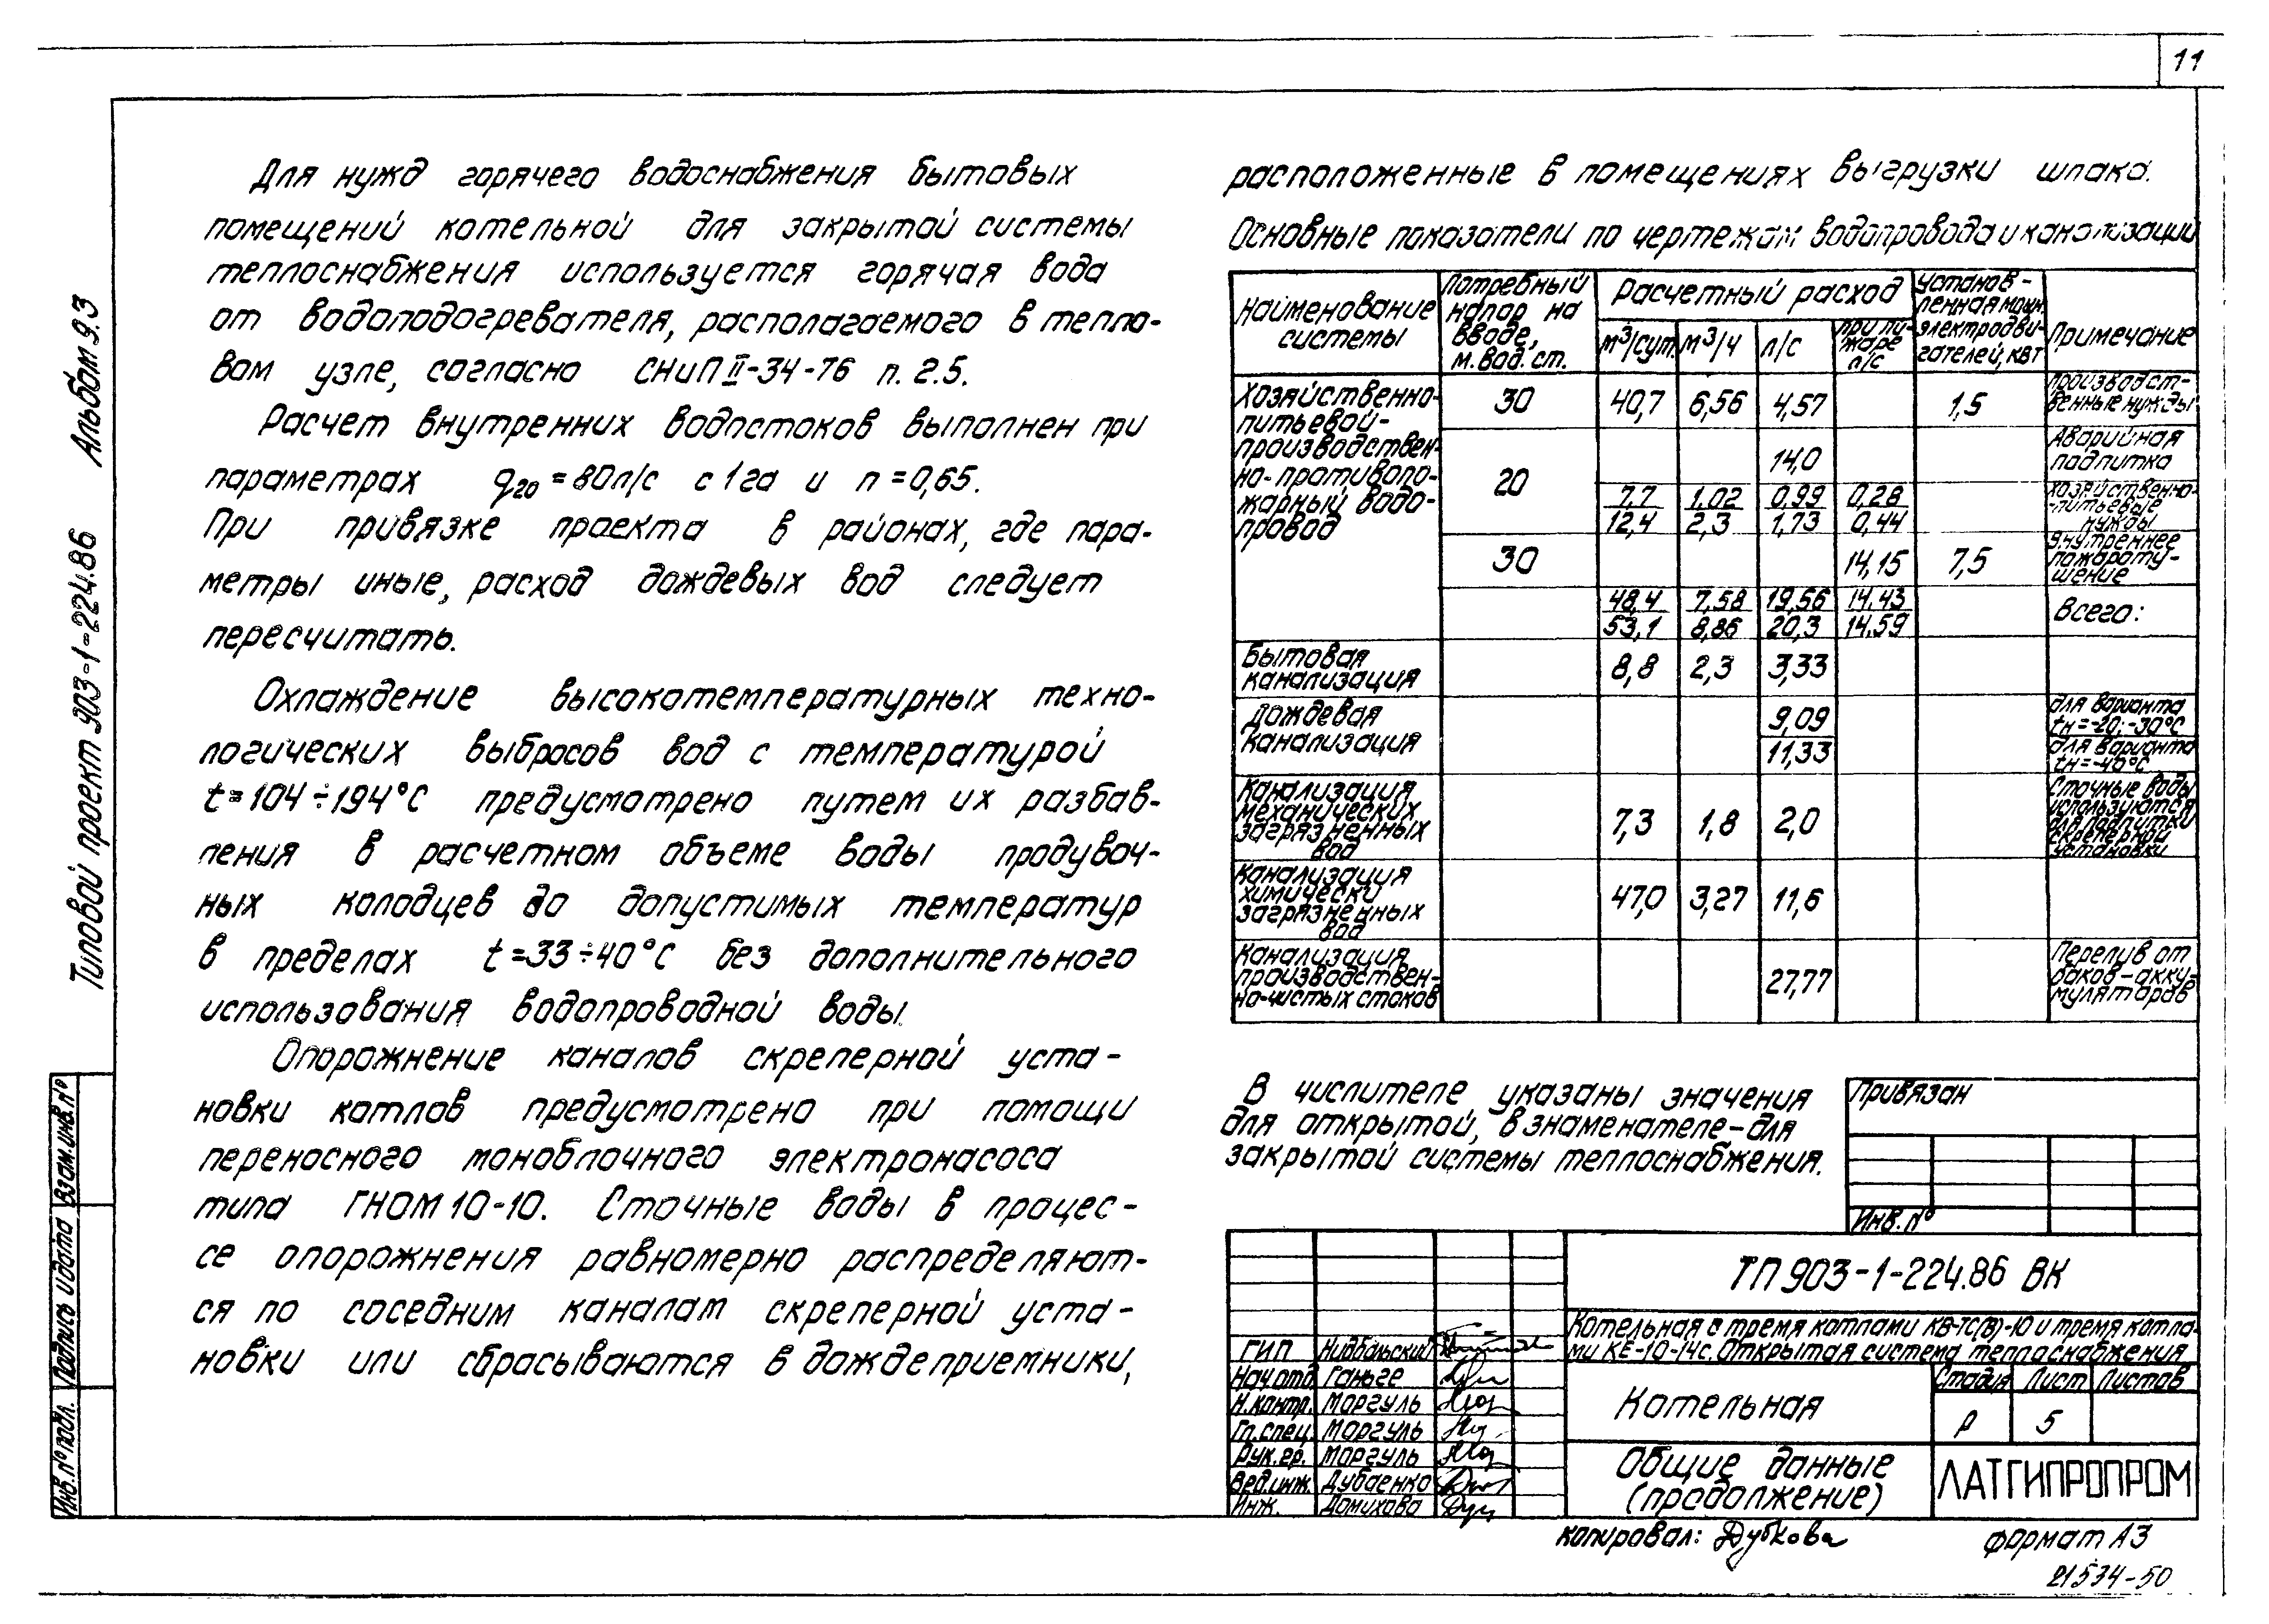 11
Для нужд горячего водоснабжения бытовых
помещений котельной для закрытой системы
теплоснабжения используется горячая вода
от водоподогревателя, располагаемого в тепло-
вом узле, согласно СНиП II-34-76 п. 2.5.
Расчет внутренних водостоков выполнен при
параметрах q20 = 80 л/с с 1 га и n = 0,65.
При привязке проекта в районах, где пара-
метры иные, расход дождевых вод следует
пересчитать.
Охлаждение высокотемпературных техно-
логических выбросов вод с температурой
t = 104 ÷ 194°С предусмотрено путем их разбав-
ления в расчетном объеме воды продувоч-
ных колодцев до допустимых температур
в пределах t = 33 ÷ 40°С без дополнительного
использования водопроводной воды.
Опорожнение каналов скреперной уста-
новки котлов предусмотрено при помощи
переносного моноблочного электронасоса
типа ГНОМ 10-10. Сточные воды в процес-
се опорожнения равномерно распределяют-
ся по соседним каналам скреперной уста-
новки или сбрасываются в дождеприемники,
расположенные в помещениях выгрузки шлака.
Основные показатели по чертежам водопровода и канализации
Наименование системы
Потребный напор на вводе, м. вод. ст.
Расчетный расход
м³/сут. м³/ч л/с при пожаре л/с
Установ-ленная мощн. электродви-гателей, квт
Примечание
Хозяйственно-питьевой-производствен-но-противопо-жарный водо-провод
30 40,7 6,56 4,57 1,5 Производст-венные нужды
20 14,0 Аварийная подпитка
7,7 1,02 0,99 0,28 Хозяйственно-питьевые нужды
12,4 2,3 1,73 0,44
30 14,15 7,5 Внутреннее пожароту-шение
48,4 7,58 19,56 14,43 Всего:
53,1 8,86 20,3 14,59
Бытовая канализация 8,8 2,3 3,33
Дождевая канализация 9,09 для варианта tн = -20; -30°С
11,33 для варианта tн = -40°С
Канализация механических загрязненных вод 7,3 1,8 2,0 Сточные воды используются для подпитки скреперной установки
Канализация химически загрязненных вод 47,0 3,27 11,6
Канализация производствен-но-чистых стоков 27,77 Перелив от баков-акку-муляторов
В числителе указаны значения
для открытой, в знаменателе – для
закрытой системы теплоснабжения.
Привязан
Инв. №
ТП 903-1-224.86 ВК
Котельная с тремя котлами КВ-ТС(В)-10 и тремя котла-
ми КЕ-10-14с. Открытая система теплоснабжения
ГИП Нидбальский
Нач. отд. Ганьге
Н. контр. Маргуль
Гл. спец. Маргуль
Рук. гр. Маргуль
Вед. инж. Дубаенко
Инж. Домихова
Котельная
Стадия Лист Листов
Р 5
Общие данные
(продолжение)
ЛАТГИПРОПРОМ
Копировал: Дубкова
Формат А3
21534-50
Типовой проект 903-1-224.86 Альбом 9.3
Взам. инв. №
Подпись и дата
Инв. № подл.